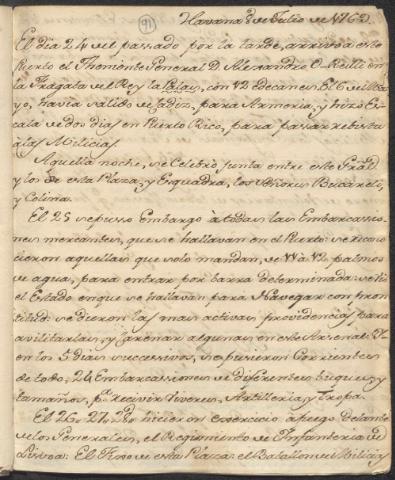 91
Havana 8 de Julio de 1769.
El dia 24 del passado por la tarde, arrivò a este
Puerto el Theniente General D. Alexandro O Reilli en
la Fragata del Rey la Palas, con 12 edecanes El 6 de Ma
yo, havia salido de Cadiz, para Armeria, y hizo Es
cala de dos dias en Puerto Rico, para passar rebista
a las Milicias.
Aquella noche, se Celebrò Junta entre este Gral
y los de esta Plaza, y Esquadra, los Señores Bucareli,
y Colina.
El 25 se pusso Embargo à todas las Embarcassio
nes mercantes, que se hallavan en el Puerto: se recono
cieron aquellas que solo mandan, de 11 à 12 palmos
de agua, para entrar por barra determinada: se viò
el Estado en que se hallavan para Navegar con pron
titud: se dieron las mas activas providencias para
avilitarlas, y carenar algunas en este Arsenal: Y
en los 5 dias successivos, se pusieron Corrientes
de todo, 24 Embarcassiones de diferentes buques, y
tamaños, pa. recivir Viveres, Artilleria, y Tropa.
El 26, 27, 28, hicieron exercicio a fuego delante
de los Generales, el Regimiento de Infanteria de
Lisboa: El Fixo de esta Plaza: el Batallon de Milicias